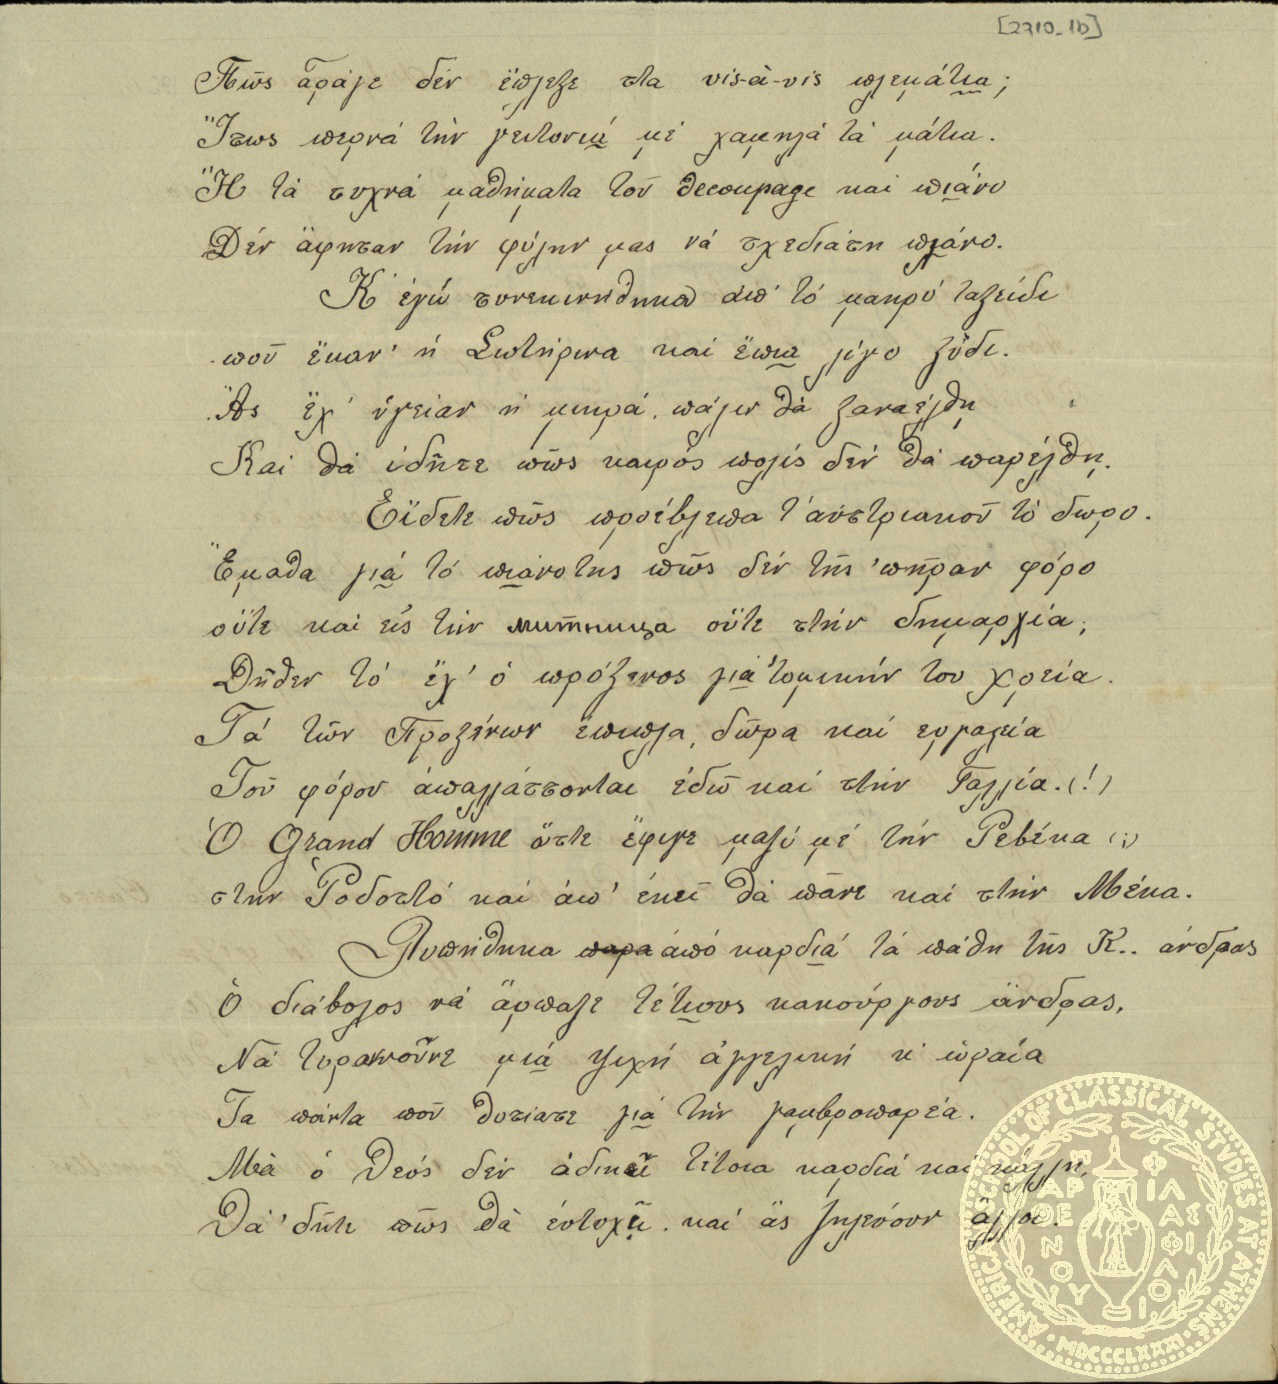 [2710-1b]
Πῶς ἆράγε δέν ἔπλεξε στα vis-à-vis πλεμάτια;
Ἴσως περνᾶ τὴν γειτονιά μέ χαμηλά τὰ μάτια.
Ἢ τὰ συχνά μαθήματα τοῦ decoupage καί πιάνο
Δέν ἄφησαν τὴν φύλην μας νά σχεδιάσῃ πλάνο.
Κ' ἐγώ συνεκινήθηκα ἀπ' τό μακρύ ταξεῖδι
ποῦ ἔκαν' ἡ Σωτήρινα καί ἔπια λίγο ξύδι.
Ἄς ἔχ' ὑγείαν ἡ μικρά. πάλιν θὰ ξαναέλθῃ
Καί θά ἰδῆτε πῶς καιρός πολύς δέν θά παρέλθῃ.
Εἴδετε πῶς προέβλεπα τ' αὐστριακοῦ τὸ δωρο.
Ἔμαθα γιά τό πιάνο της πῶς δέν τῆς 'πῆραν φόρο
οὔτε καί εἰς τὴν митница οὔτε στήν δημαρχία;
Δῆθεν τό ἔχ' ὁ πρόξενος γιά 'τομικήν του χρεία.
Τά τῶν Προξένων ἔπιπλα, δῶρα καί εργαλεία
Τοῦ φόρου ἀπαλλάσσονται ἐδῶ καί στήν Γαλλία. (!)
Ὁ Grand Homme ὅστε ἔφυγε μαζύ μέ τήν Ρεβέκα (;)
στην Ῥοδοστό καί ἀπ' ἐκεῖ θὰ πᾶνε καί στήν Μέκα.
Λυπήθηκα παρα ἀπό καρδιά τά πάθη τῆς Κ.. άνδρας
Ὁ διάβολος νά ἅρπαζε τέτιους κακούργους ἄνδρας,
Νὰ τυραννοῦνε μιά ψυχή ἀγγελική κ' ὡραία
Τα πάντα ποῦ θυσίασε γιά τὴν γαμβροπαρέα.
Μὰ ὁ Θεός δέν ἀδικεῖ τέτοια καρδιά καί κάλλη,
Θά 'δῆτε πῶς θὰ εὐτυχῇ. καί ἄς ζηλεύουν ἄλλοι.
AMERICAN SCHOOL OF CLASSICAL STUDIES AT ATHENS
MDCCCLXXXI